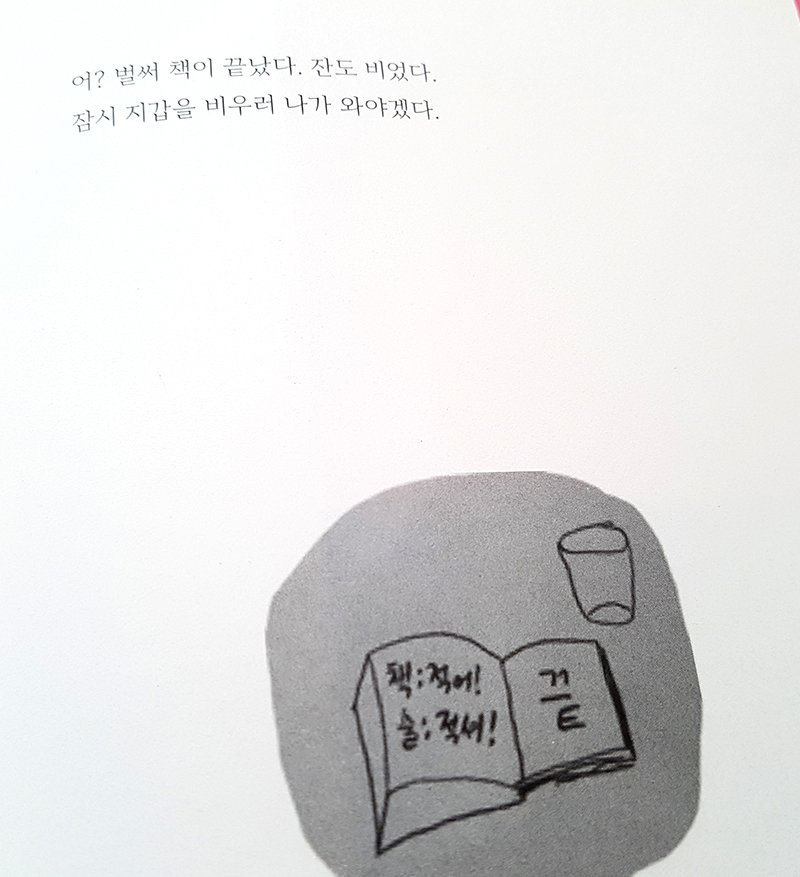 어? 벌써 책이 끝났다. 잔도 비었다.
잠시 지갑을 비우러 나가 와야겠다.
책:적어!
술:적셔!
끝